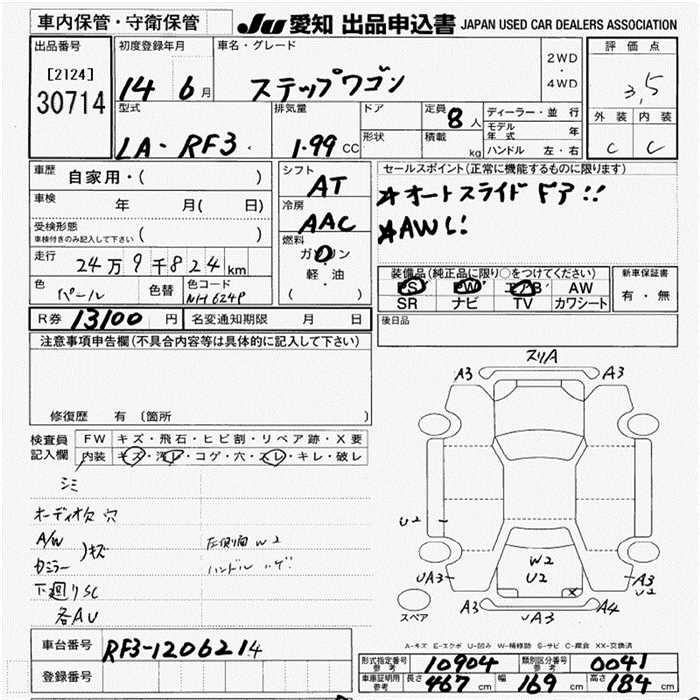 車内保管・守衛保管
JU 愛知 出品申込書 JAPAN USED CAR DEALERS ASSOCIATION
出品番号 初度登録年月 車名・グレード 2WD ・ 4WD 評価点
[2124]
30714 14 6月 ステップワゴン 3,5
型式 排気量 ドア 定員 8人 ディーラー・並行 外装 内装
LA-RF3 1.99 CC 形状 積載 kg モデル年式 年 C C
ハンドル 左・右
車歴 自家用・( ) シフト AT セールスポイント(正常に機能するものに限ります)
車検 年 月( 日) 冷房 AAC ★オートスライドドア!!
受検形態 ( ) ★AWL!
車検付きのみ記入して下さい
燃料 ガソリン
走行 24万9千824km 軽・油
( )
装備品(純正品に限り○をつけてください) 新車保証書
PS PW エアB AW 有・無
SR ナビ TV カワシート
色 パール 色替 色コード NH624P
R券 13100円 名変通知期限 月 日 後日品
注意事項申告欄(不具合内容等は具体的に記入して下さい)
修復歴 有 (箇所
検査員記入欄 FW キズ・飛石・ヒビ割・リペア跡・X要
内装 キズ・汚レ・コゲ・穴・スレ・キレ・破レ
シミ
オーディオ欠 穴
A/W
)キズ
左側面 W2
ハンドル ハゲ
下廻りSC
各AU
スリA
A3 A3
U2
W2
U2
X
UA3 A3
U2
A3 UA3 A4
スペア
A-キズ E-エクボ U-凹み W-補修跡 S-サビ C-腐食 XX-交換済
車台番号 RF3-1206214
登録番号
形式指定番号 参考 10904 類別区分番号 参考 0041
車庫証明用 参考 長さ 467cm 幅 169cm 高さ 184cm